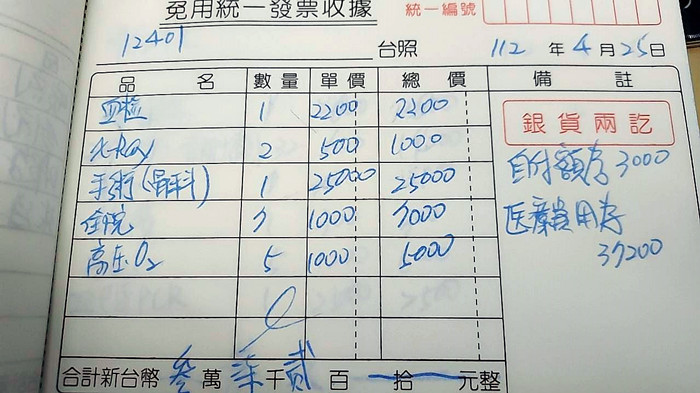 免用統一發票收據
統一編號
12401 台照 112 年 4 月 25 日
品名 數量 單價 總價 備註
血檢 1 2200 2200
X-Ray 2 500 1000
手術(骨科) 1 25000 25000
住院 7 1000 7000
高压O2 5 1000 5000
銀貨兩訖
自付額為3000
医療費用為
37200
合計新台幣叁萬柒千貳百拾元整